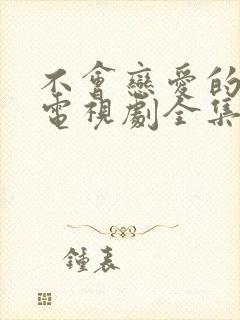 不會戀愛的
電視劇全集
鍾表